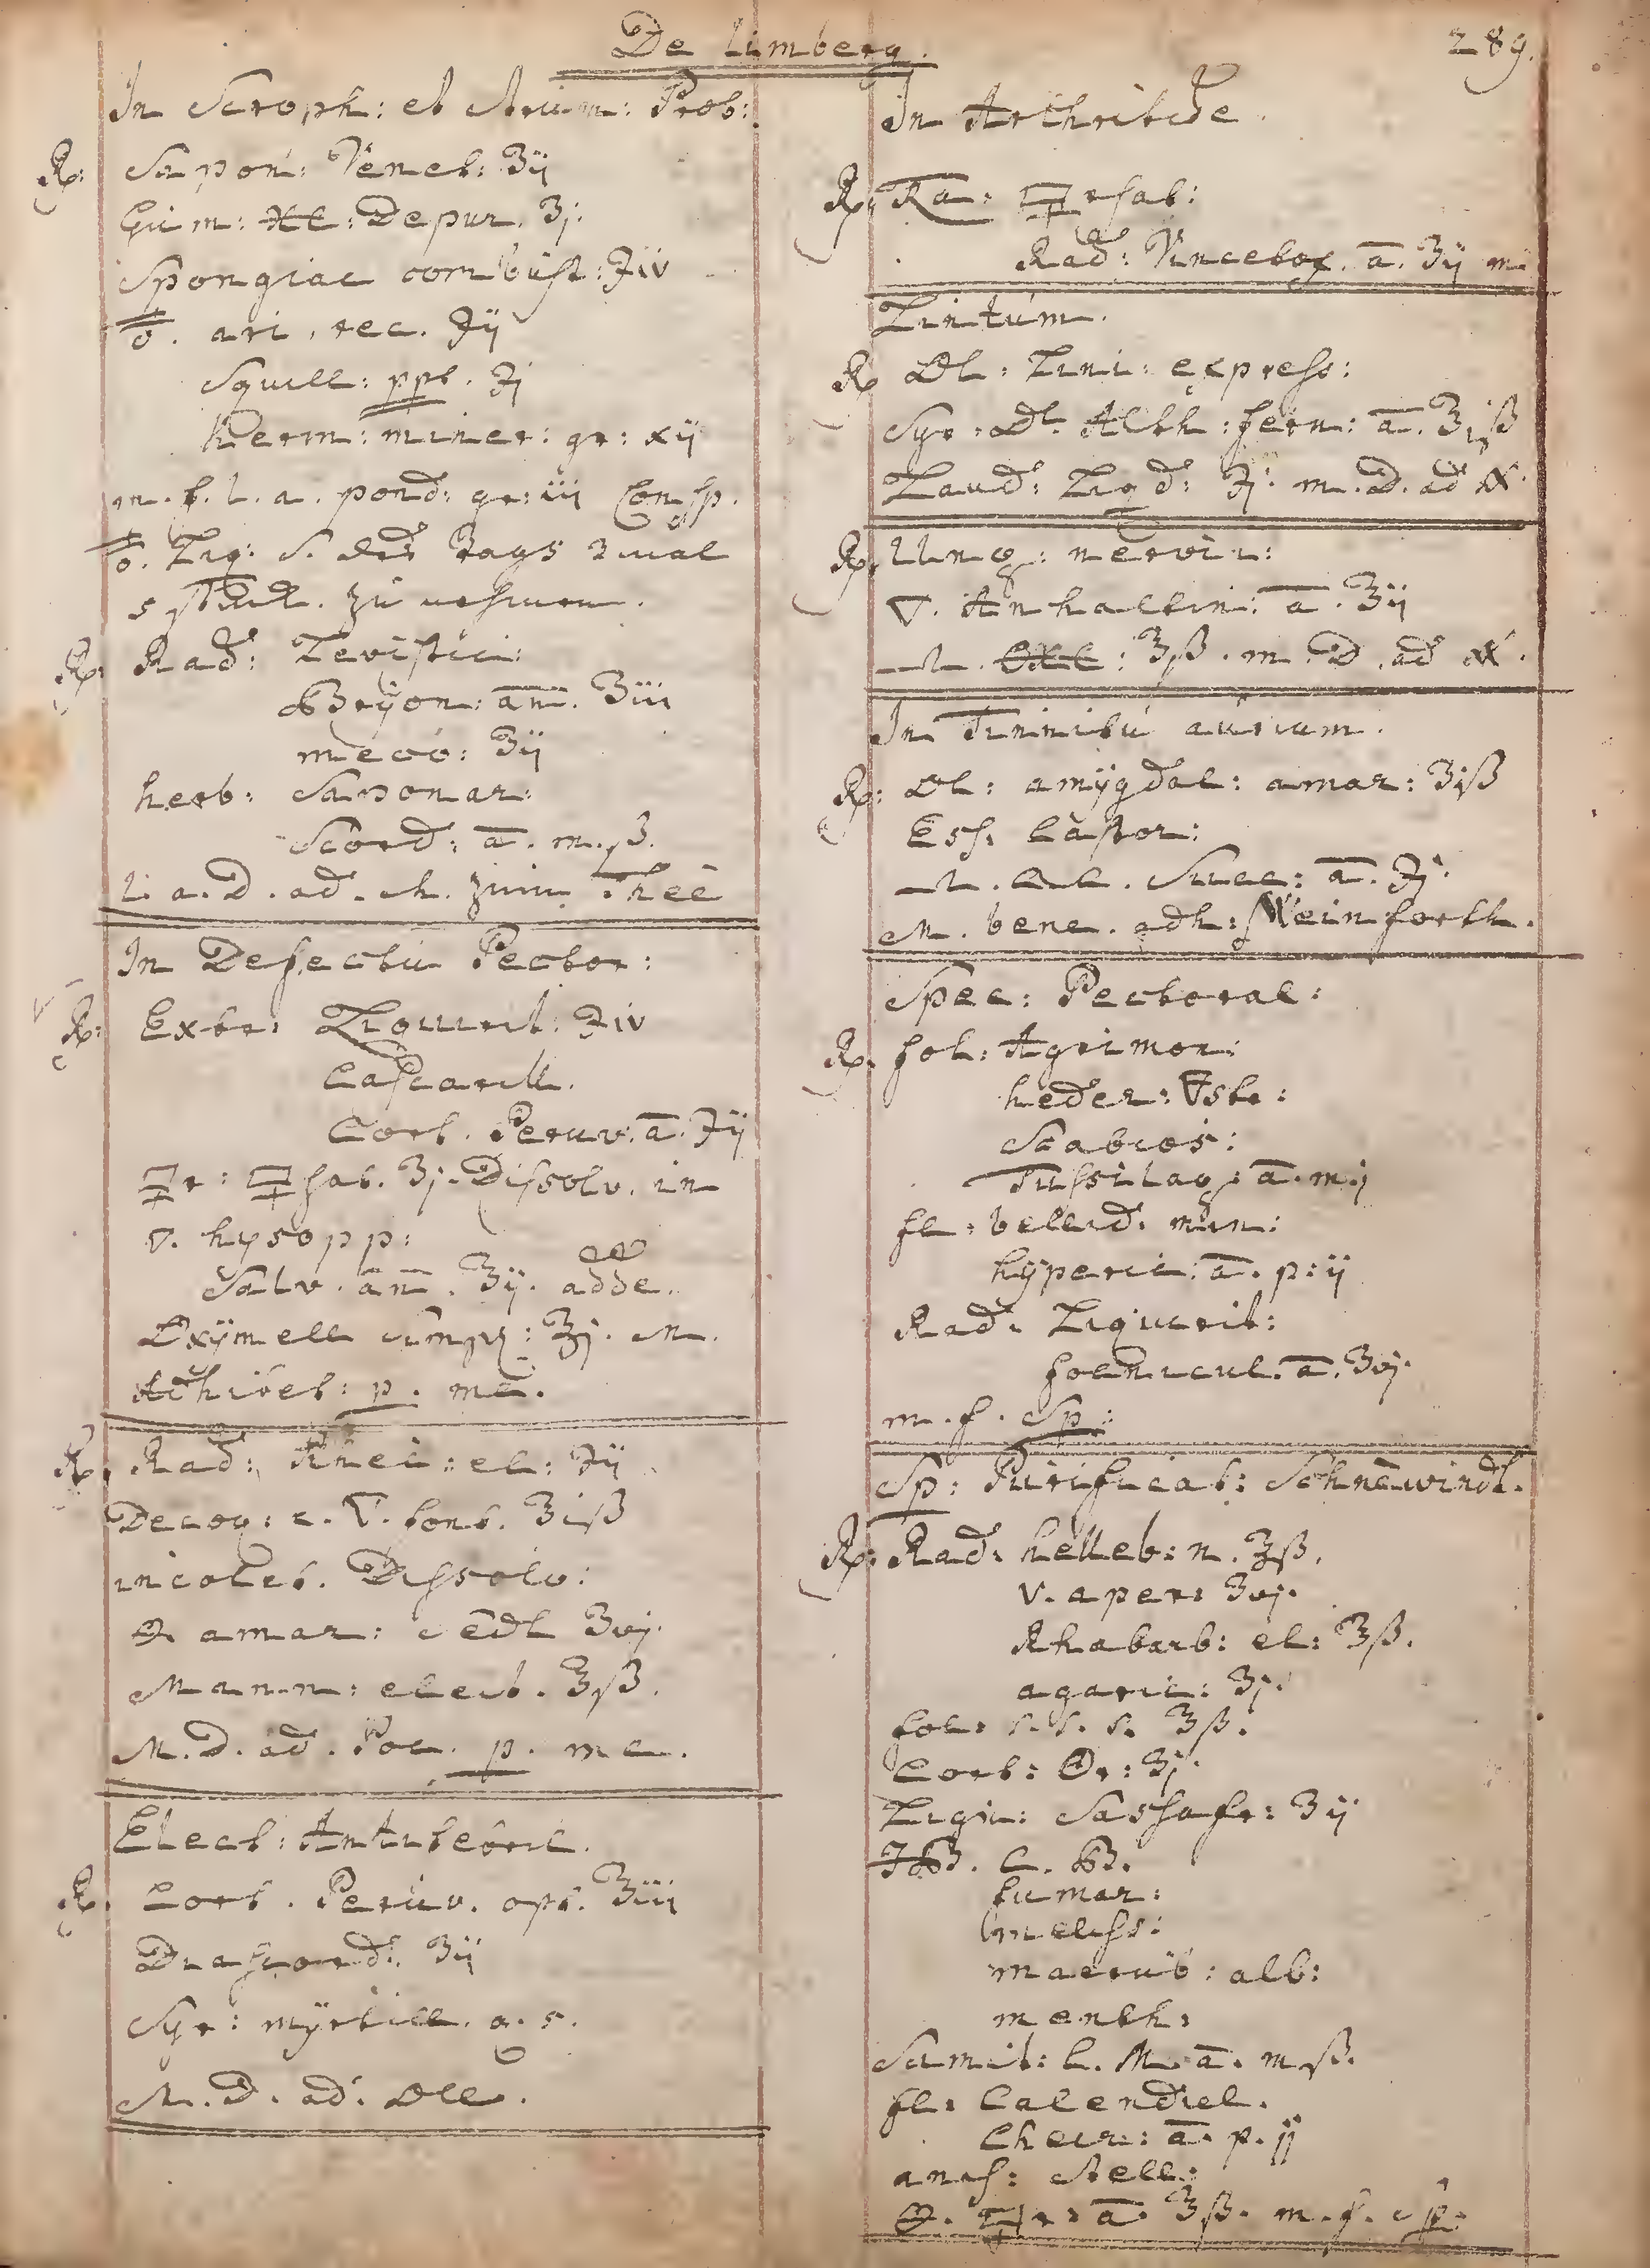 De Limberg.
289.
In Scroph: et Strum: Prob:
℞: Sapon: Venet: ʒij
Gum: Depur. ʒj.
Spongiae combust: ℈iv
ari. rec. ℈ij
Squill: ppt. ℈j
Kerm: miner: gr: xij
m. f. l. a. pond: gr: iij Consp.
Liq: S. des Tags 3 mal
5 stück. zu nehmen.
℞. Rad: Levistici:
Bryon: an̄. ʒiii
meco: ʒij
herb: Saponar:
Scord: ā. m.ß.
i. a. D. ad. ch. zum Thee
In Defectu Pector:
℞: Extr: Liquirit: ℈iv
Cascarill.
Cort. Peruv: ā. ℈ij
🜿r: 🜿sat. ʒj. Dissolv. in
▽. hysopp:
Salv. an̄. ℥ij. adde.
Oxÿmell simpl: ℥j. M.
Achibet: p. me.
℞. Rad: Rhei: el: ℈ij
Decoq: c. ▽. font. ℥iß
in colet. Dissolv:
amar: ʒvj.
Mann: elect. ℥ß.
M. D. ad. Poc. p. me.
Elect: Antifebril.
℞. Cort. Peruv. opt. ʒiii
Diascord: ʒij
Syr: mÿrtill. q. s.
M. D. ad. Oll.
In Arthritide.
℞. Ra: 🜿rsat:
Rad: Vincetox. ā. ʒij m.
Lintum.
℞ Ol: Lini: express:
Syr: Dl. Alth: fern: ā. ℥iß
Laud: Liqd: ℈j. m. D. ad
℞. Ung: nervin:
▽. Anhaltin: ā. ʒij
ʒß. m. D. ad
In Tinnitu aurium.
℞: Ol: amÿgdal: amar: ʒiß
Ess. Castor:
Succ: ā. ℈j.
M. bene. adh: Weinforth.
Spec: Pectoral:
℞. fol: Agrimon:
heder: ▽str:
Scabios:
Tussilag: ā. m.j
fl: bellid. min:
hÿperic: ā. p: ij
Rad: Liquirit:
foenicul. ā. ʒvj.
m. f. Sp:
Sp: Purificat: Schnewindl.
℞: Rad: helleb: n. ℥ß.
V. aper: ʒvj.
Rhabarb: el: ℥ß.
agaric: ʒj.
fol: s. s. s. ℥ß.
Cort: Or: ʒj.
Lign: Sassafr: ʒij
C. B.
fumar:
meliss:
marrub: alb:
menth:
Sumit: C. M. ā. m.ß.
fl: Calendul.
Cheir: ā. p. ij
anis: stell:
🜿r: ā. ʒß. m. f. sp: